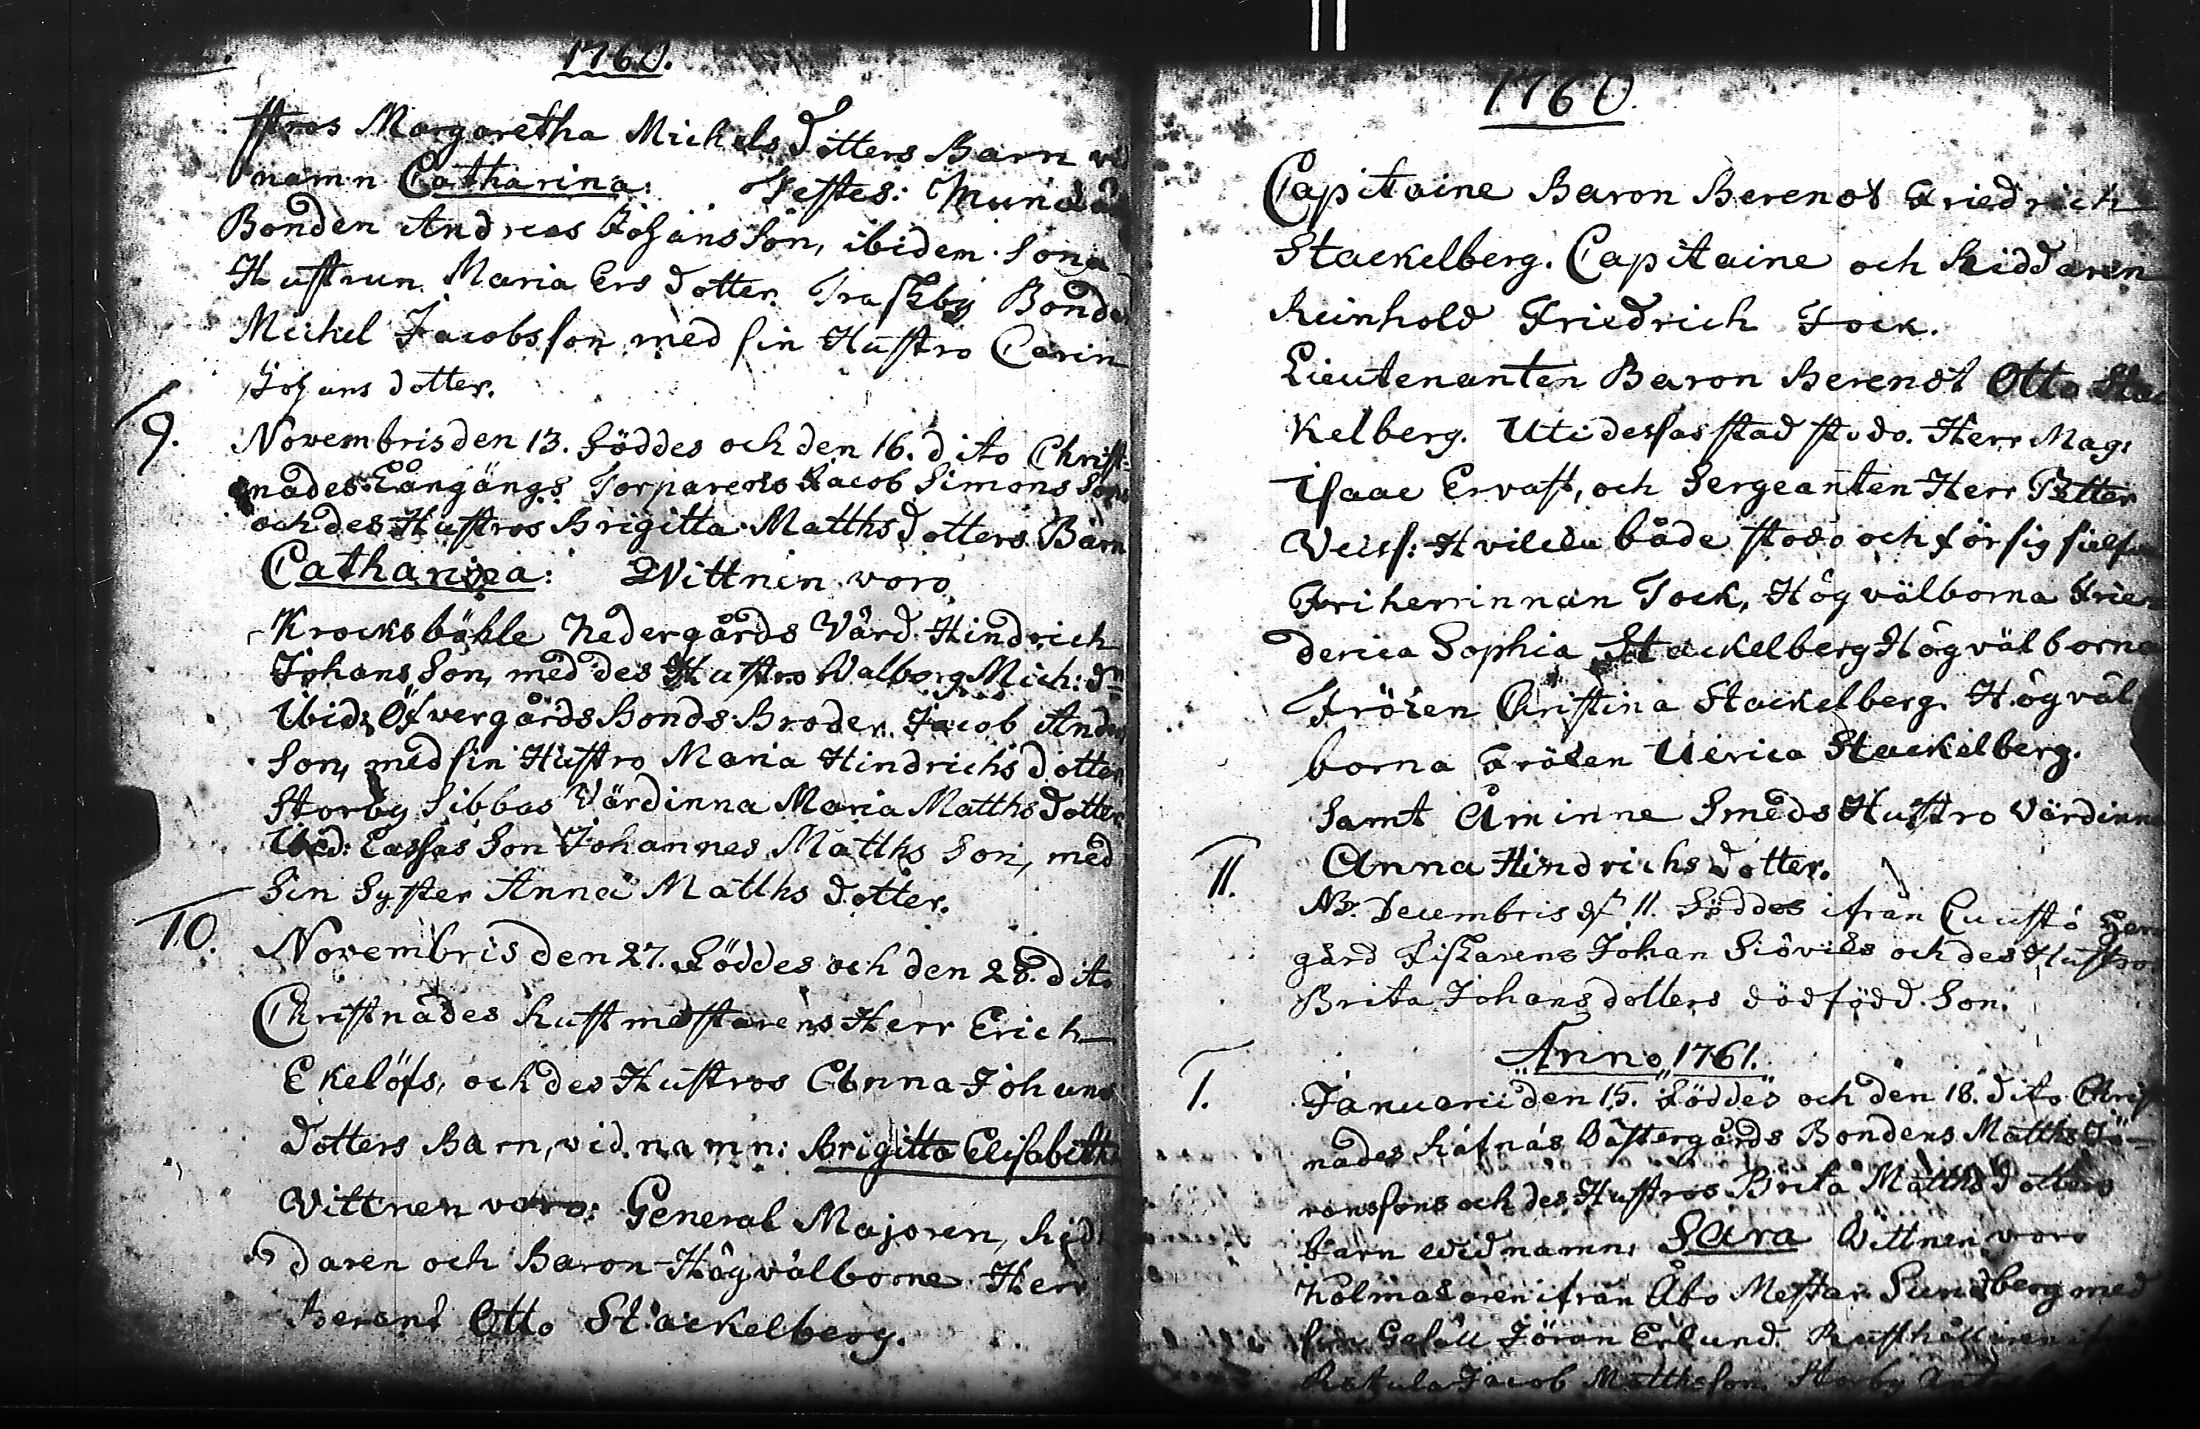 1760.
stros Margaretha Michels dotters Barn
namn Catharina: Testes:
Bonden Andreas Johans Son, ibidem Sona
Hustrun Maria Ers dotter. Traskby Bonde
Michel Jacobsson med sin Hustro Carin
Johans dotter.
9. Novembris den 13. Föddes och den 16. dito Christ-
nades: Långängs Torparens Jacob Simons Sons
och des Hustros Brigitta Matths dotters Barn
Catharina: Vittnen woro
Krocksböhle Nedergårds Värd Hindrich
Johans Son, med des Hustro Walborg Mich: dr
Ibid: Öfvergårds Bonds Broder Jacob And
Son, med sin Hustro Maria Hindrichs dotter
Storby Sibbas Värdinna Maria Matths dotter
Ibid: Lassas Son Johannes Matths Son, med
Sin Syster Anna Matths dotter.
10. Novembris den 27. Föddes och den 28. dito
Christnades Rustmestarens Herr Erich
Ekelöfs, och des Hustros Anna Johans
dotters Barn, vid namn: Brigitta Elisabetha
Vittnen voro: General Majoren, Rid
daren och Baron Högvälborne Herr
Berent Otto Stackelberg.
1760
Capitaine Baron Berendt Friedrich
Stackelberg. Capitaine och Riddaren
Reinhold Friedrich Tock.
Lieutenanten Baron Berendt Otto Stac
kelberg. Uti dessas stad stodo. Herr Mag:
Isaac Ervast, och Sergeanten Herr Petter
Veiss: Hvilcka både stodo och för sig sielfva
Friherrinnan Tock, Högvälborna Frie
derica Sophia Stackelberg Högvälborna
Fröken Christina Stackelberg. Högväl
borna Fröken Ulrica Stackelberg.
Samt Åminne Smeds Hustro Värdinna
Anna Hindrichs dotter.
11. NB. Decembris d. 11. Föddes ifrån Cuustö Herr
gård Fiskarens Johan Siövils och des Hustro
Brita Johans dotters dödfödd Son.
Anno 1761.
1. Januarii den 15. Föddes och den 18. dito Christ
nades Råfnäs Västergårds Bondens Matths Jö-
ransons och des Hustros Brita Matths dotters
barn wid namn: Sara Vittnen woro
ifrån Åbo Mestar Sundberg med
sin Gesäll Jöran Erlund. Rusthållaren
Jacob Matthsson. Storby